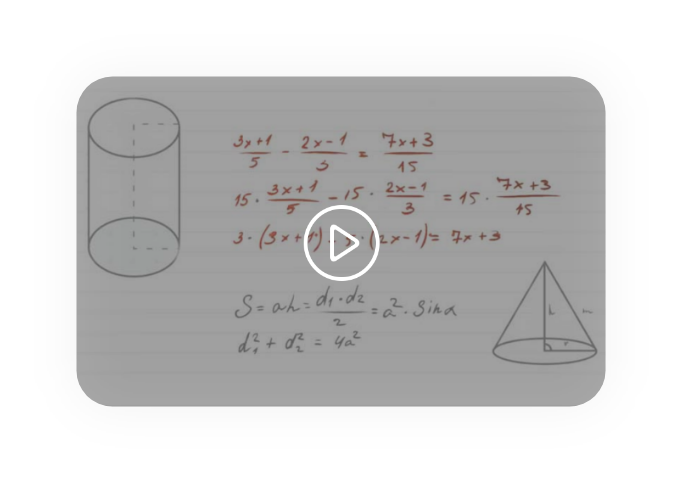 3x+1/5 - 2x-1/3 = 7x+3/15
15 · 3x+1/5 - 15 · 2x-1/3 = 15 · 7x+3/15
3 · (3x+1) - 5 · (2x-1) = 7x+3
S = ah = d₁·d₂/2 = a² · sin α
d₁² + d₂² = 4a²
h
r